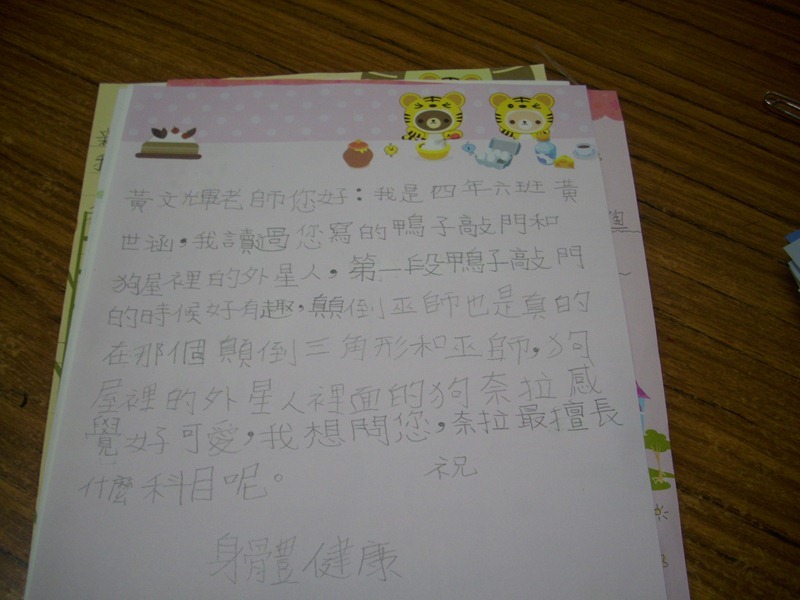 黃文輝老師您好：我是四年六班黃
世涵，我讀過您寫的鴨子敲門和
狗屋裡的外星人，第一段鴨子敲門
的時候好有趣，顛倒巫師也是真的
在那個顛倒三角形和巫師，狗
屋裡的外星人裡面的狗奈拉感
覺好可愛，我想問您，奈拉最擅長
什麼科目呢。 祝
身體健康